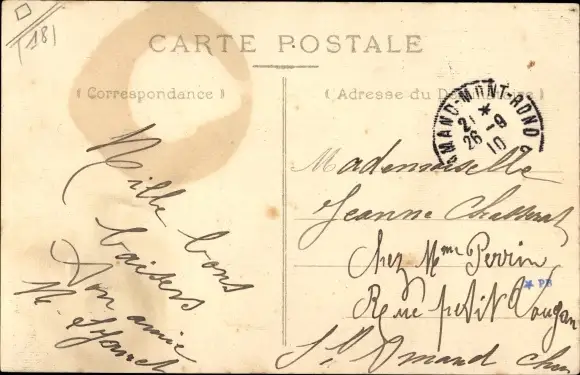 (18)
CARTE POSTALE
(Correspondance)
(Adresse du
MAND-MONT-ROND
21
26 -9
10
Mille bons
baisers
Ton amie
M.
Mademoiselle
Jeanne
Chez Mme Perrin
PB
Rue petit
St Amand Cher